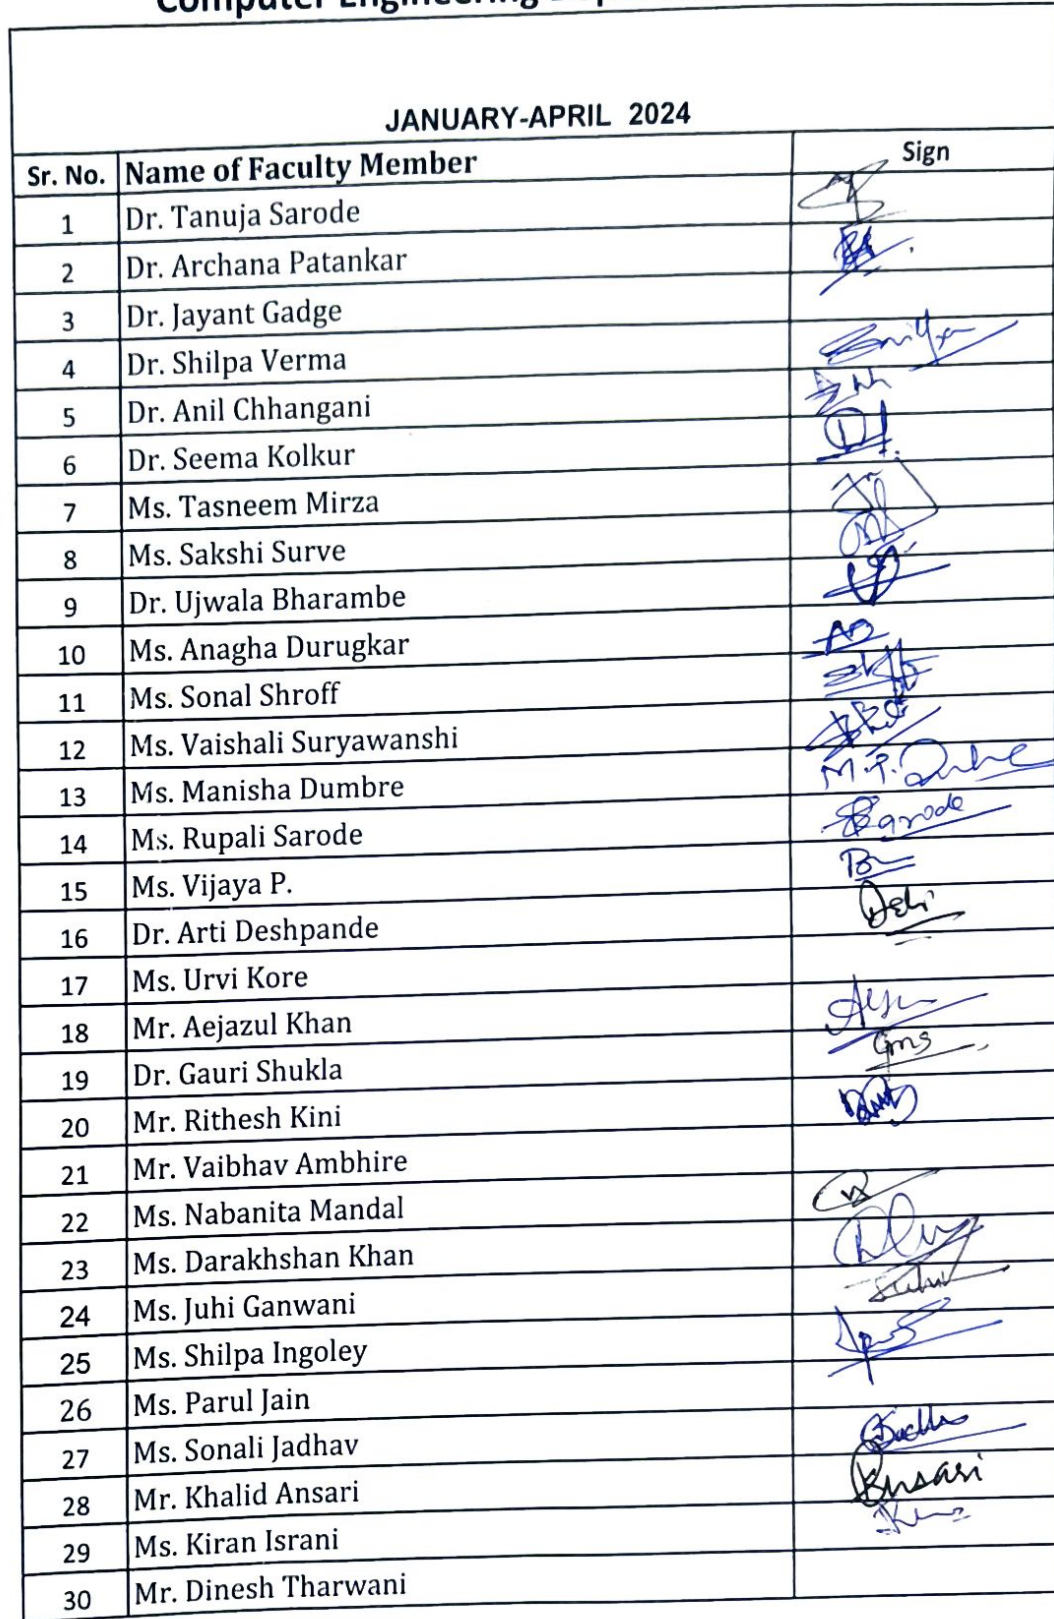 Computer Engineering
JANUARY-APRIL 2024
Sr. No. Name of Faculty Member Sign
1 Dr. Tanuja Sarode
2 Dr. Archana Patankar
3 Dr. Jayant Gadge
4 Dr. Shilpa Verma
5 Dr. Anil Chhangani
6 Dr. Seema Kolkur
7 Ms. Tasneem Mirza
8 Ms. Sakshi Surve
9 Dr. Ujwala Bharambe
10 Ms. Anagha Durugkar
11 Ms. Sonal Shroff
12 Ms. Vaishali Suryawanshi
13 Ms. Manisha Dumbre M.P. Dumbre
14 Ms. Rupali Sarode Sarode
15 Ms. Vijaya P.
16 Dr. Arti Deshpande
17 Ms. Urvi Kore
18 Mr. Aejazul Khan
19 Dr. Gauri Shukla Gms
20 Mr. Rithesh Kini
21 Mr. Vaibhav Ambhire
22 Ms. Nabanita Mandal
23 Ms. Darakhshan Khan
24 Ms. Juhi Ganwani
25 Ms. Shilpa Ingoley
26 Ms. Parul Jain
27 Ms. Sonali Jadhav
28 Mr. Khalid Ansari Ansari
29 Ms. Kiran Israni
30 Mr. Dinesh Tharwani